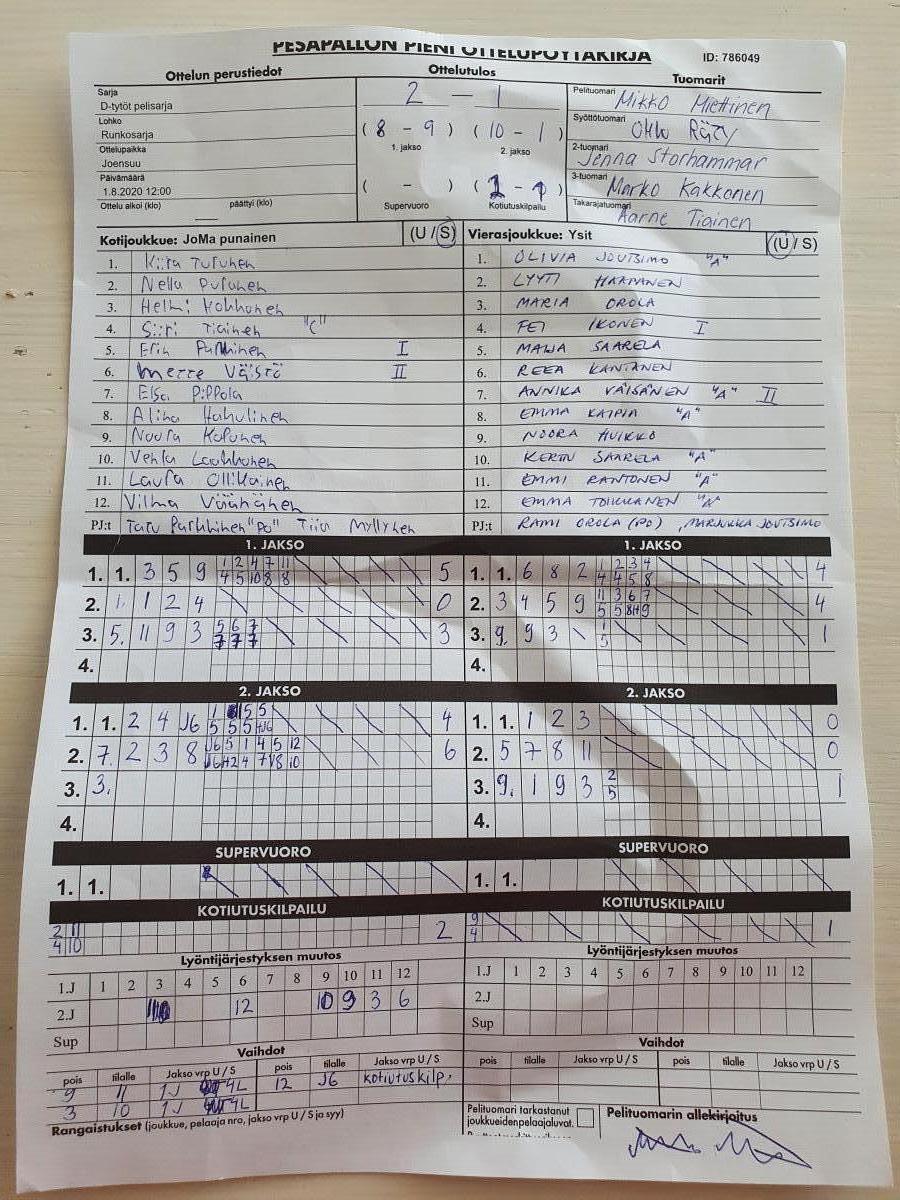 PESÄPALLON PIENI OTTELUPÖYTÄKIRJA
ID: 786049
Ottelun perustiedot
Sarja
D-tytöt pelisarja
Lohko
Runkosarja
Ottelupaikka
Joensuu
Päivämäärä
1.8.2020 12:00
Ottelu alkoi (klo) päättyi (klo)
Ottelutulos
2 — 1
( 8 - 9 ) ( 10 - 1 )
1. jakso 2. jakso
( - ) ( 2 - 1
Supervuoro Kotiutuskilpailu
Tuomarit
Pelituomari Mikko Miettinen
Syöttötuomari Otto Räty
2-tuomari Jenna Storhammar
3-tuomari Marko Kakkonen
Takarajatuomari Aarne Tiainen
Kotijoukkue: JoMa punainen (U / S)
1. Kiira Turunen
2. Nella Puranen
3. Helmi Kokkonen
4. Siiri Tiainen "C"
5. Erin Parkkinen I
6. Merre Väistö II
7. Elsa Pippola
8. Alina Hakulinen
9. Noora Koponen
10. Venla Laukkanen
11. Laura Ollikainen
12. Vilma Väänänen
PJ:t Taru Parkkinen "PO" Tiia Myllynen
Vierasjoukkue: Ysit (U / S)
1. OLIVIA JOUTSIMO "A"
2. LYYTI HARPANEN
3. MARIA OROLA
4. FEI IKONEN I
5. MAIJA SAARELA
6. REEA KANTANEN
7. ANNIKA VÄISÄNEN "A" II
8. EMMA KAIPIA "A"
9. NOORA HUIKKO
10. KERTTU SAARELA "A"
11. EMMI RANTONEN "A"
12. EMMA TOIKKANEN "A"
PJ:t RAMI OROLA (PO) , MARJUKKA JOUTSIMO
1. JAKSO
1. 1. 3 5 9 1 2 4 7 11 5
4 5 10 8 8
2. 1. 1 2 4 0
3. 5. 11 9 3 5 6 7 3
7 7 7
4.
1. JAKSO
1. 1. 6 8 2 1 2 3 4 4
4 4 5 8
2. 3 4 5 9 11 3 6 7 4
5 5 8 9
3. 9. 9 3 1 1
5
4.
2. JAKSO
1. 1. 2 4 J6 1 5 5 4
5 5 5 J6
2. 7. 2 3 8 J6 5 1 4 5 12 6
J6 2 4 7 8 10
3. 3.
4.
2. JAKSO
1. 1. 1 2 3 0
2. 5 7 8 11 0
3. 9. 1 9 3 2 1
5
4.
SUPERVUORO
1. 1.
SUPERVUORO
1. 1.
KOTIUTUSKILPAILU
2 11 2
4 10
KOTIUTUSKILPAILU
9 1
4
Lyöntijärjestyksen muutos
1.J 1 2 3 4 5 6 7 8 9 10 11 12
2.J 12 10 9 3 6
Sup
Lyöntijärjestyksen muutos
1.J 1 2 3 4 5 6 7 8 9 10 11 12
2.J
Sup
Vaihdot
pois tilalle Jakso vrp U / S pois tilalle Jakso vrp U / S
9 11 1J 4L 12 J6 kotiutuskilp.
3 10 1J 4L
Rangaistukset (joukkue, pelaaja nro, jakso vrp U / S ja syy)
Vaihdot
pois tilalle Jakso vrp U / S pois tilalle Jakso vrp U / S
Pelituomari tarkastanut
joukkueidenpelaajaluvat.
Pelituomarin allekirjoitus